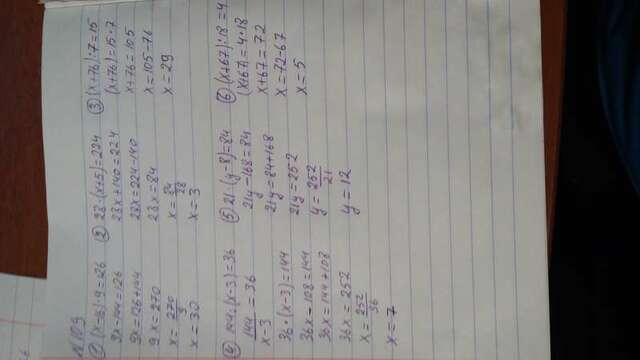 №109
① (x-16)·9=126
9x-144=126
9x=126+144
9x=270
x=270/9
x=30
② 28·(x+5)=224
28x+140=224
28x=224-140
28x=84
x=84/28
x=3
③ (x+76):7=15
(x+76)=15·7
x+76=105
x=105-76
x=29
④ 144:(x-3)=36
144/x-3=36
36·(x-3)=144
36x-108=144
36x=144+108
36x=252
x=252/36
x=7
⑤ 21·(y-8)=84
21y-168=84
21y=84+168
21y=252
y=252/21
y=12
⑥ (x+67):18=4
(x+67)=4·18
x+67=72
x=72-67
x=5